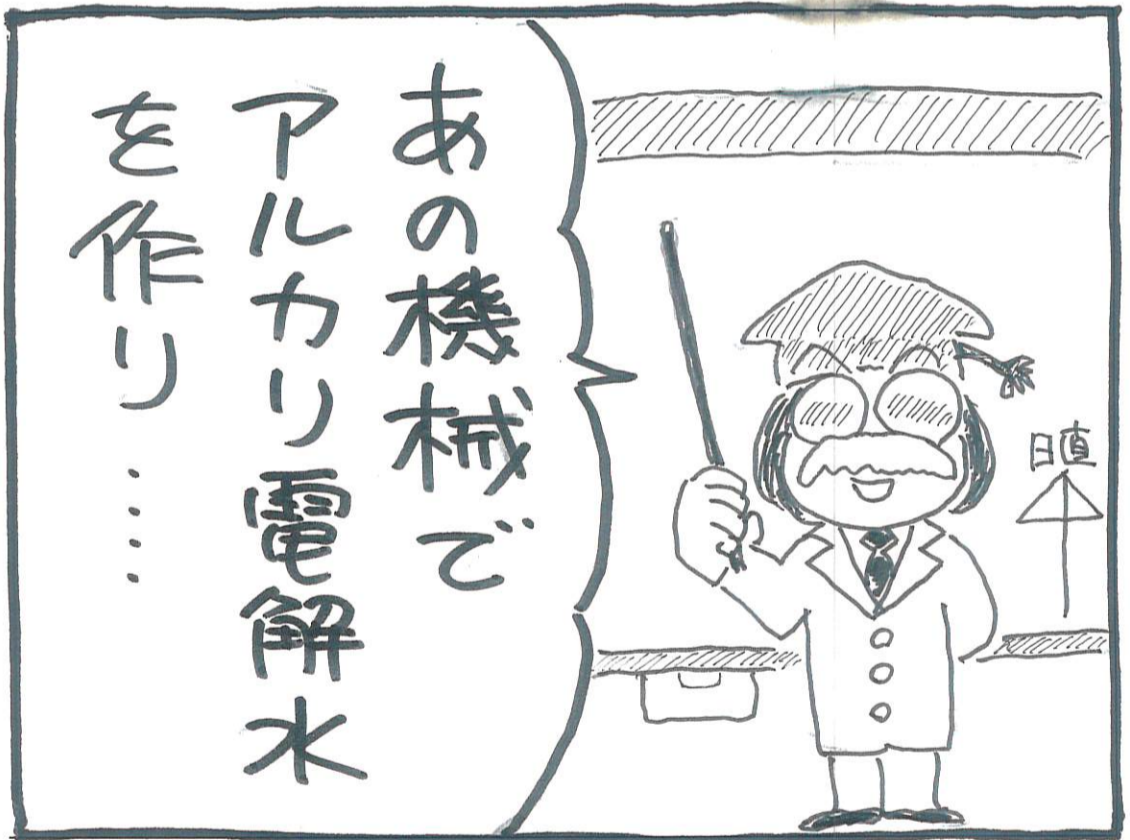 あの機械で
アルカリ電解水
を作り……
日直